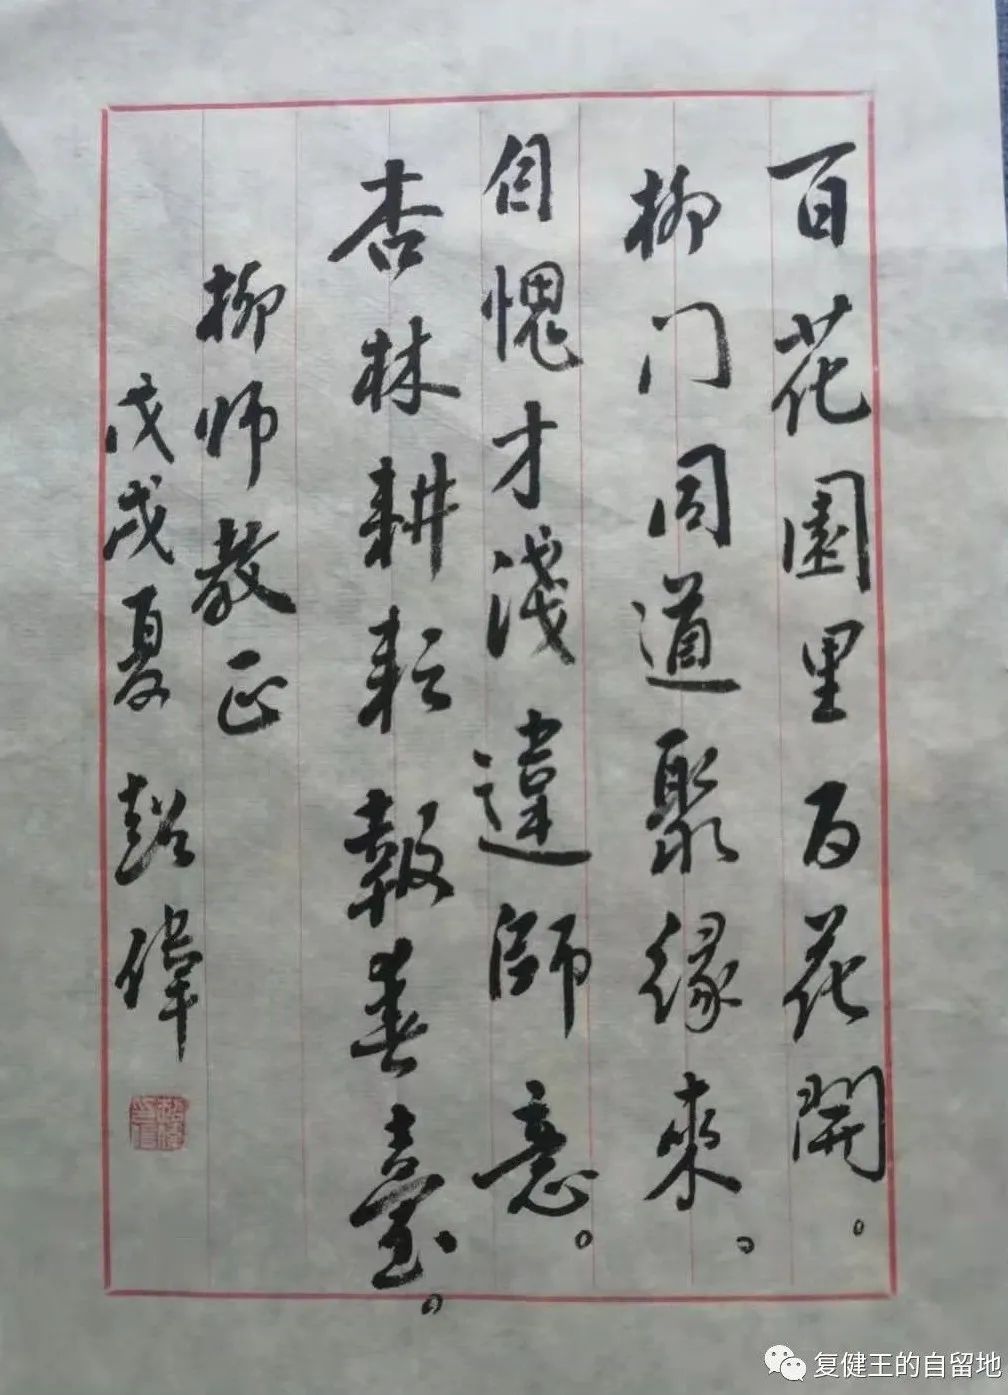 百花園里百花開。
柳门同道聚缘來。
自愧才淺違師意。
杏林耕耘報春臺。
柳师教正
戊戌夏 偉
复健王的自留地